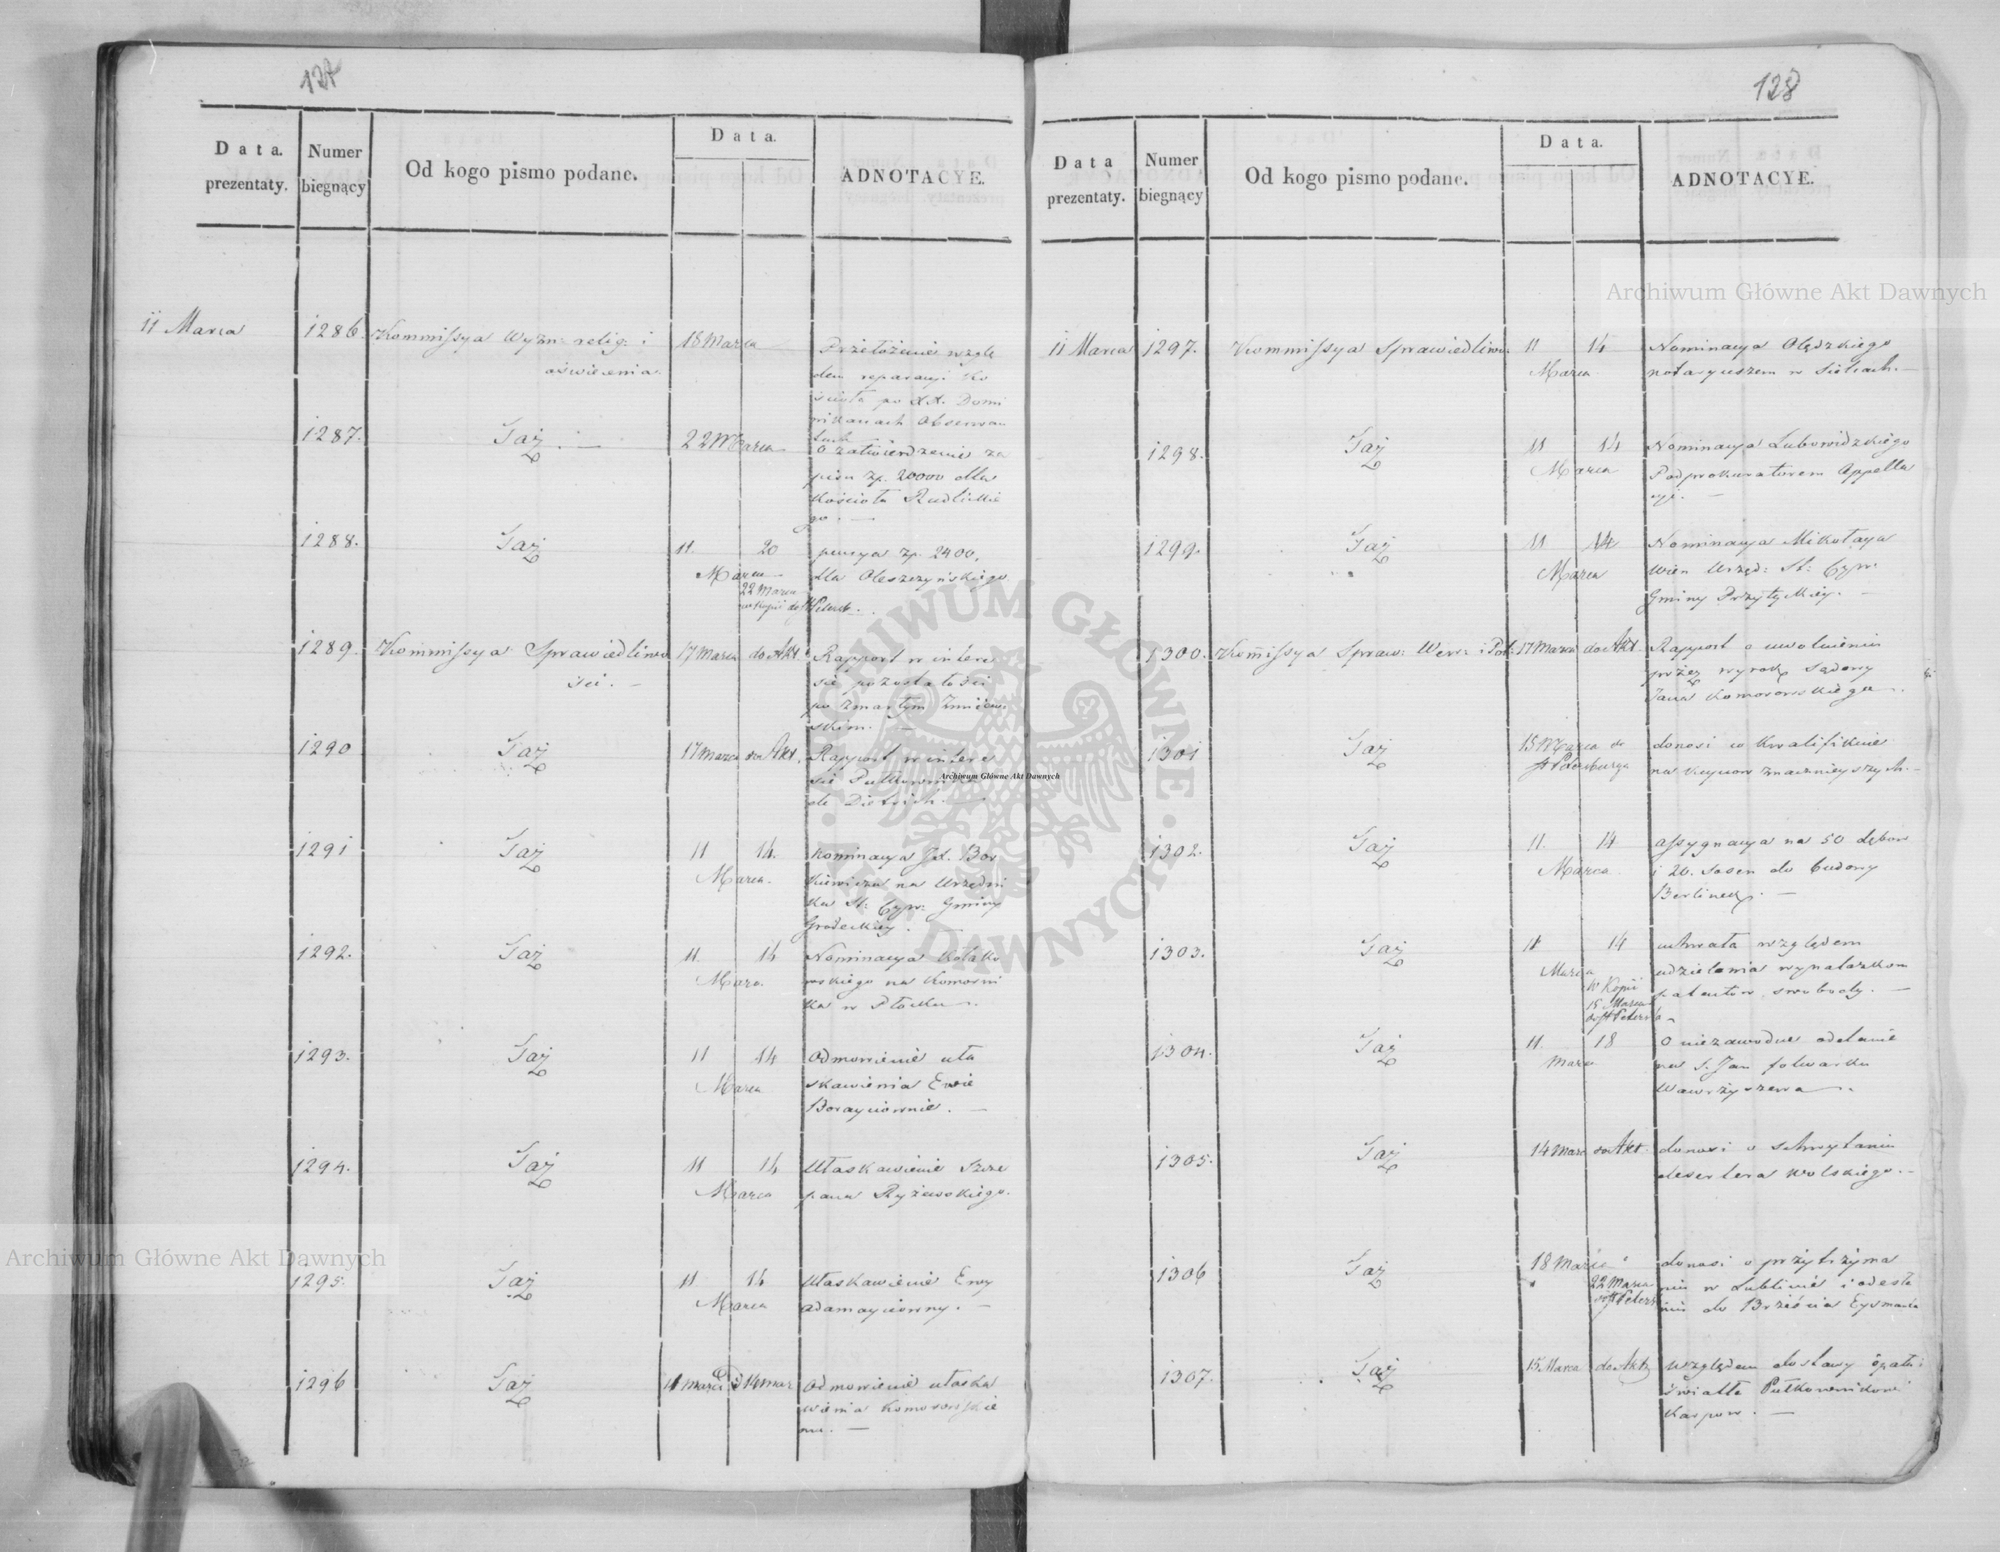 127
Data.
prezentaty.
Numer
biegnący
Od kogo pismo podane.
Data.
ADNOTACYE.
11 Marca
1286.
Kommissya Wyzn: relig: i
oświecenia.
18 Marca
Przełożenie wzglę
dem reparacyi Ko
ścioła po XX. Domi
nikanach Obserwan
tach
1287.
Taż
22 Marca
O zatwierdzenie za
pisu zp. 20000 dla
Kościoła
1288.
Taż
11 20
Marca
22 Marca
w Kopii do Petersb.
pensya zp. 2400,
dla Oleszczyńskiego
1289.
Kommissya Sprawiedliwo
ści.
17 Marca do Akt.
Rapport w intere
sie pozostałości
po zmarłym
skim.
1290
Taż
17 Marca do Akt.
Rapport w intere
sie Pułkownika
de Dietrich.
1291
Taż
11 14.
Marca.
Nominacya Jd. Bor
kiewicza na Urzędni
ka St: Cyw: Gminy
Grodeckiey.
1292.
Taż
11 14
Marca
Nominacya Kołako
wskiego na Komorni
ka w Płocku.
1293.
Taż
11 14
Marca
Odmowienie uła
skawienia Ewie
1294.
Taż
11 14
Marca
Ułaskawienie Szcze
pana Ryżewskiego.
1295.
Taż
11 14
Marca
Ułaskawienie Ewy
Adamaycionny.
1296
Taż
11 Marca 14 Mar
Odmowienie ułaska
wienia Komorowskie
mu.
128
Data
prezentaty.
Numer
biegnący
Od kogo pismo podane.
Data.
ADNOTACYE.
11 Marca
1297.
Kommissya Sprawiedliwo:
11 14
Marca
Nominacya Olędzkiego
notaryuszem w Sielcach.
1298.
Taż
11 14
Marca
Nominacya Lubowidzkiego
Podprokuratorem Appella
cyi.
1299.
Taż
11 14
Marca
Nominacya Mikołaya
Wien Urzęd: St: Cyw:
Gminy Przytyckiey.
1300.
Kommissya Spraw: Wew: i Pol:
17 Marca do Akt.
Rapport o uwolnieniu
przez wyrok sądowy
Jana Komorowskiego.
1301
Taż
15 Marca do
St Petersburga
donosi o kwalifikacie
1302.
Taż
11. 14
Marca.
assygnacya na 50 dębow
i 20. Sosen do budowy
Berlinek.
1303.
Taż
11 14
Marca
w Kopii
15 Marca
do St Petersb
uchwała względem
udzielania wynalazkom
patentow swobody.
1304.
Taż
11. 18
Marca
O niezawodne oddanie
na S. Jan folwarku
Wawrzyszewa.
1305.
Taż
14 Marc do Akt.
donosi o schwytaniu
desertera Wolskiego.
1306
Taż
18 Marca
22 Marca
do St Petersb
donosi o przytrzyma
niu w Lublinie i odesła
niu do Brześcia Eysmonta
1307.
Taż
15 Marca do Akt
względem dostawy opału i
światła Pułkownikowi
Karpow.
Archiwum Główne Akt Dawnych
Archiwum Główne Akt Dawnych
Archiwum Główne Akt Dawnych
ARCHIWUM GŁÓWNE AKT DAWNYCH